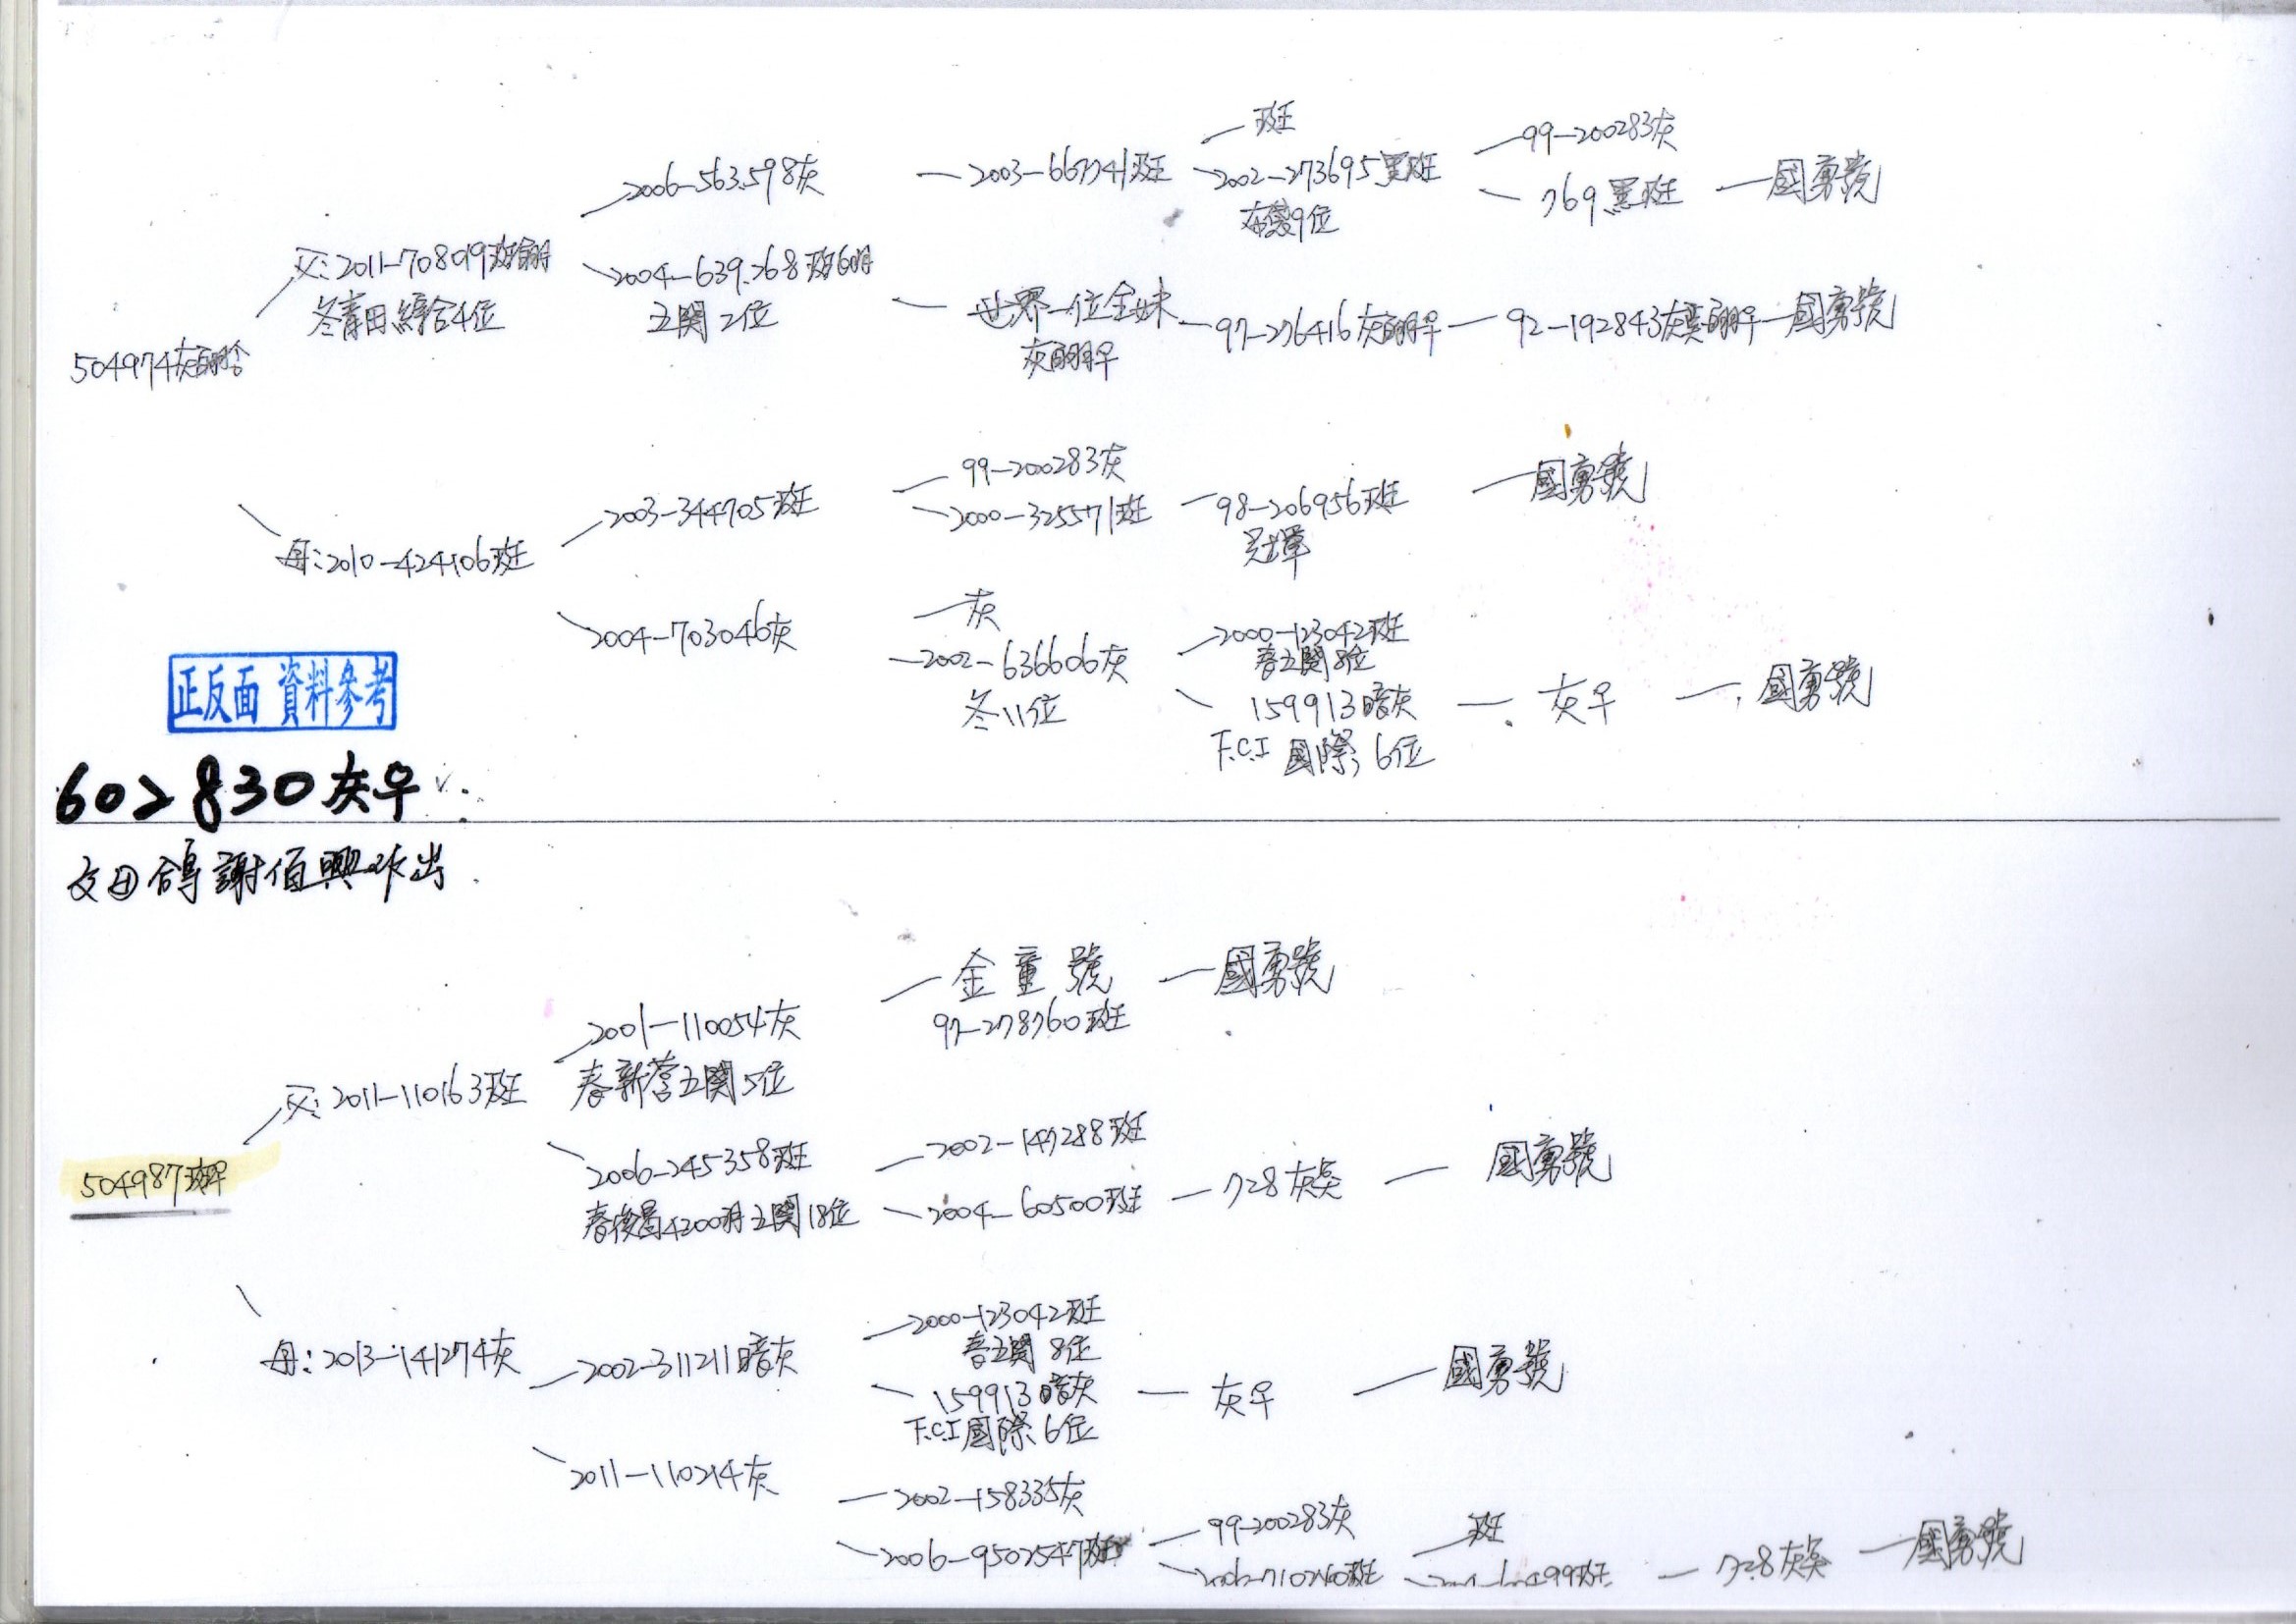 班
99-200283灰
2006-563598灰
2003-667741班
2002-273695黑班
769黑班
國勇號
9位
父:2011-708019班
2004-639268班
冬青田綜合4位
五關2位
世界一位全妹
97-276416灰
92-192843灰
國勇號
灰
504974灰
99-200283灰
國勇號
2003-344705班
2000-325571班
98-206956班
冠軍
母:2010-424106班
灰
2004-703046灰
2000-123042班
2002-636606灰
春五關8位
冬11位
159913暗灰
灰♀
國勇號
F.C.I 國際6位
正反面 資料參考
602830灰♀
父母鴿謝佰興作出
金童號
國勇號
97-278760班
2001-110054灰
春新營五關5位
父:2011-110163班
2002-147288班
2006-245358班
2004-60500班
728灰
國勇號
504987班♀
春後昌4200羽五關18位
2000-123042班
春五關8位
母:2013-141274灰
2002-311211暗灰
159913暗灰
灰♀
國勇號
F.C.I國際6位
2011-110214灰
2002-158335灰
99-200283灰
班
2006-9502547班
728灰
國勇號